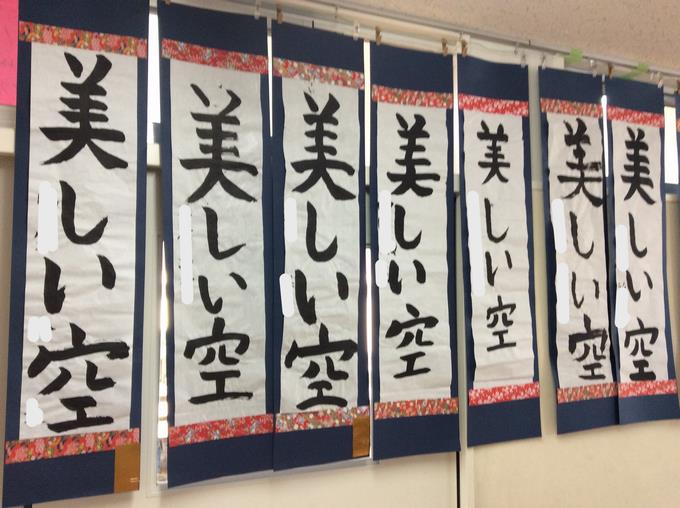 美しい空
美しい空
美しい空
美しい空
美しい空
美しい空
美しい空